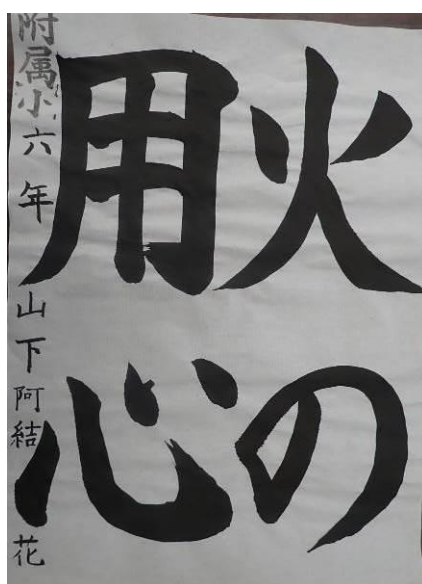 火の
用心
附属小六年 山下阿結花